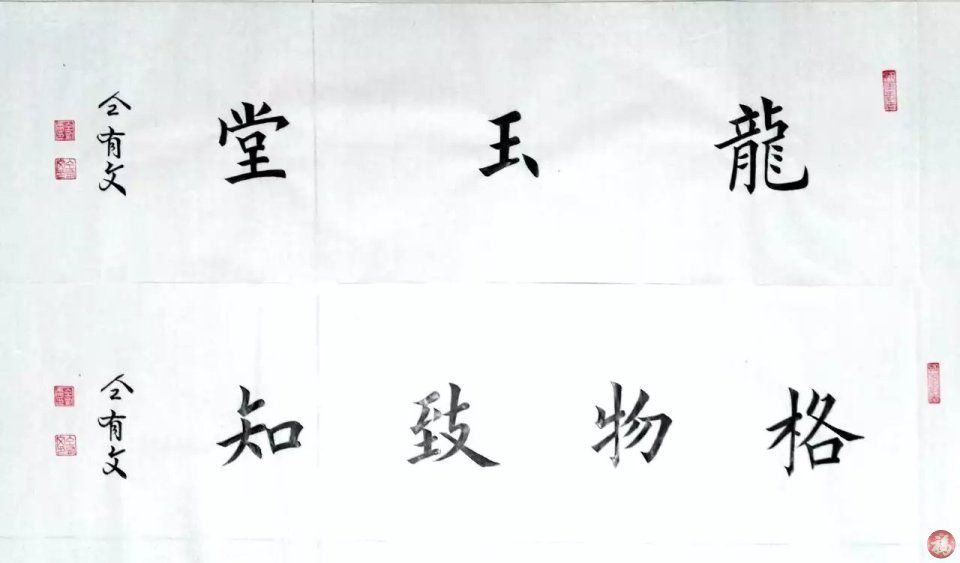 龍玉堂
仝有文
格物致知
仝有文
福